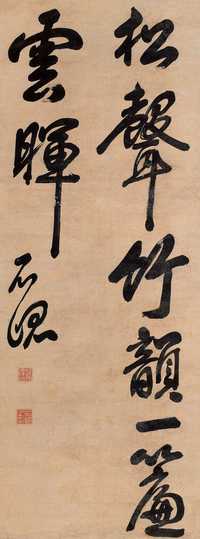 松聲竹韻一簾
雲暉
石